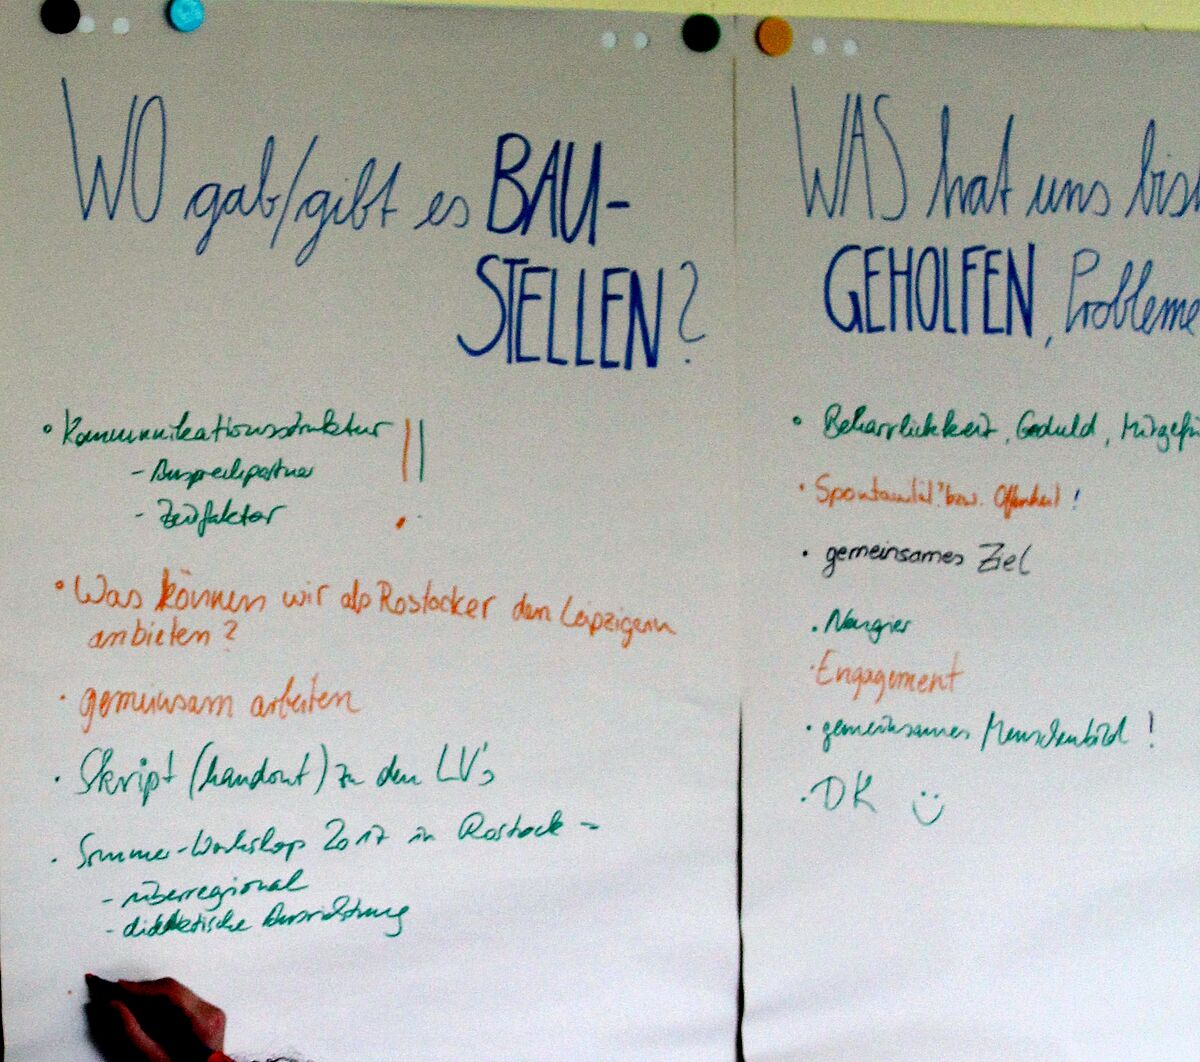 WO gab/gibt es BAU-
STELLEN?
• Kommunikationsstruktur !!
- Ansprechpartner
- Zeitfaktor
• Was können wir als Rostocker den Leipzigern
anbieten?
• gemeinsam arbeiten
• Skript (handout) zu den LV's
• Sommer-Workshop 2017 in Rostock -
- überregional
- didaktische Ausrichtung
WAS hat uns
GEHOLFEN, Probleme
• Beharrlichkeit, Geduld,
• Spontanität bzw. Offenheit!
• gemeinsames Ziel
• Neugier
• Engagement
• gemeinsames Menschenbild!
• DK